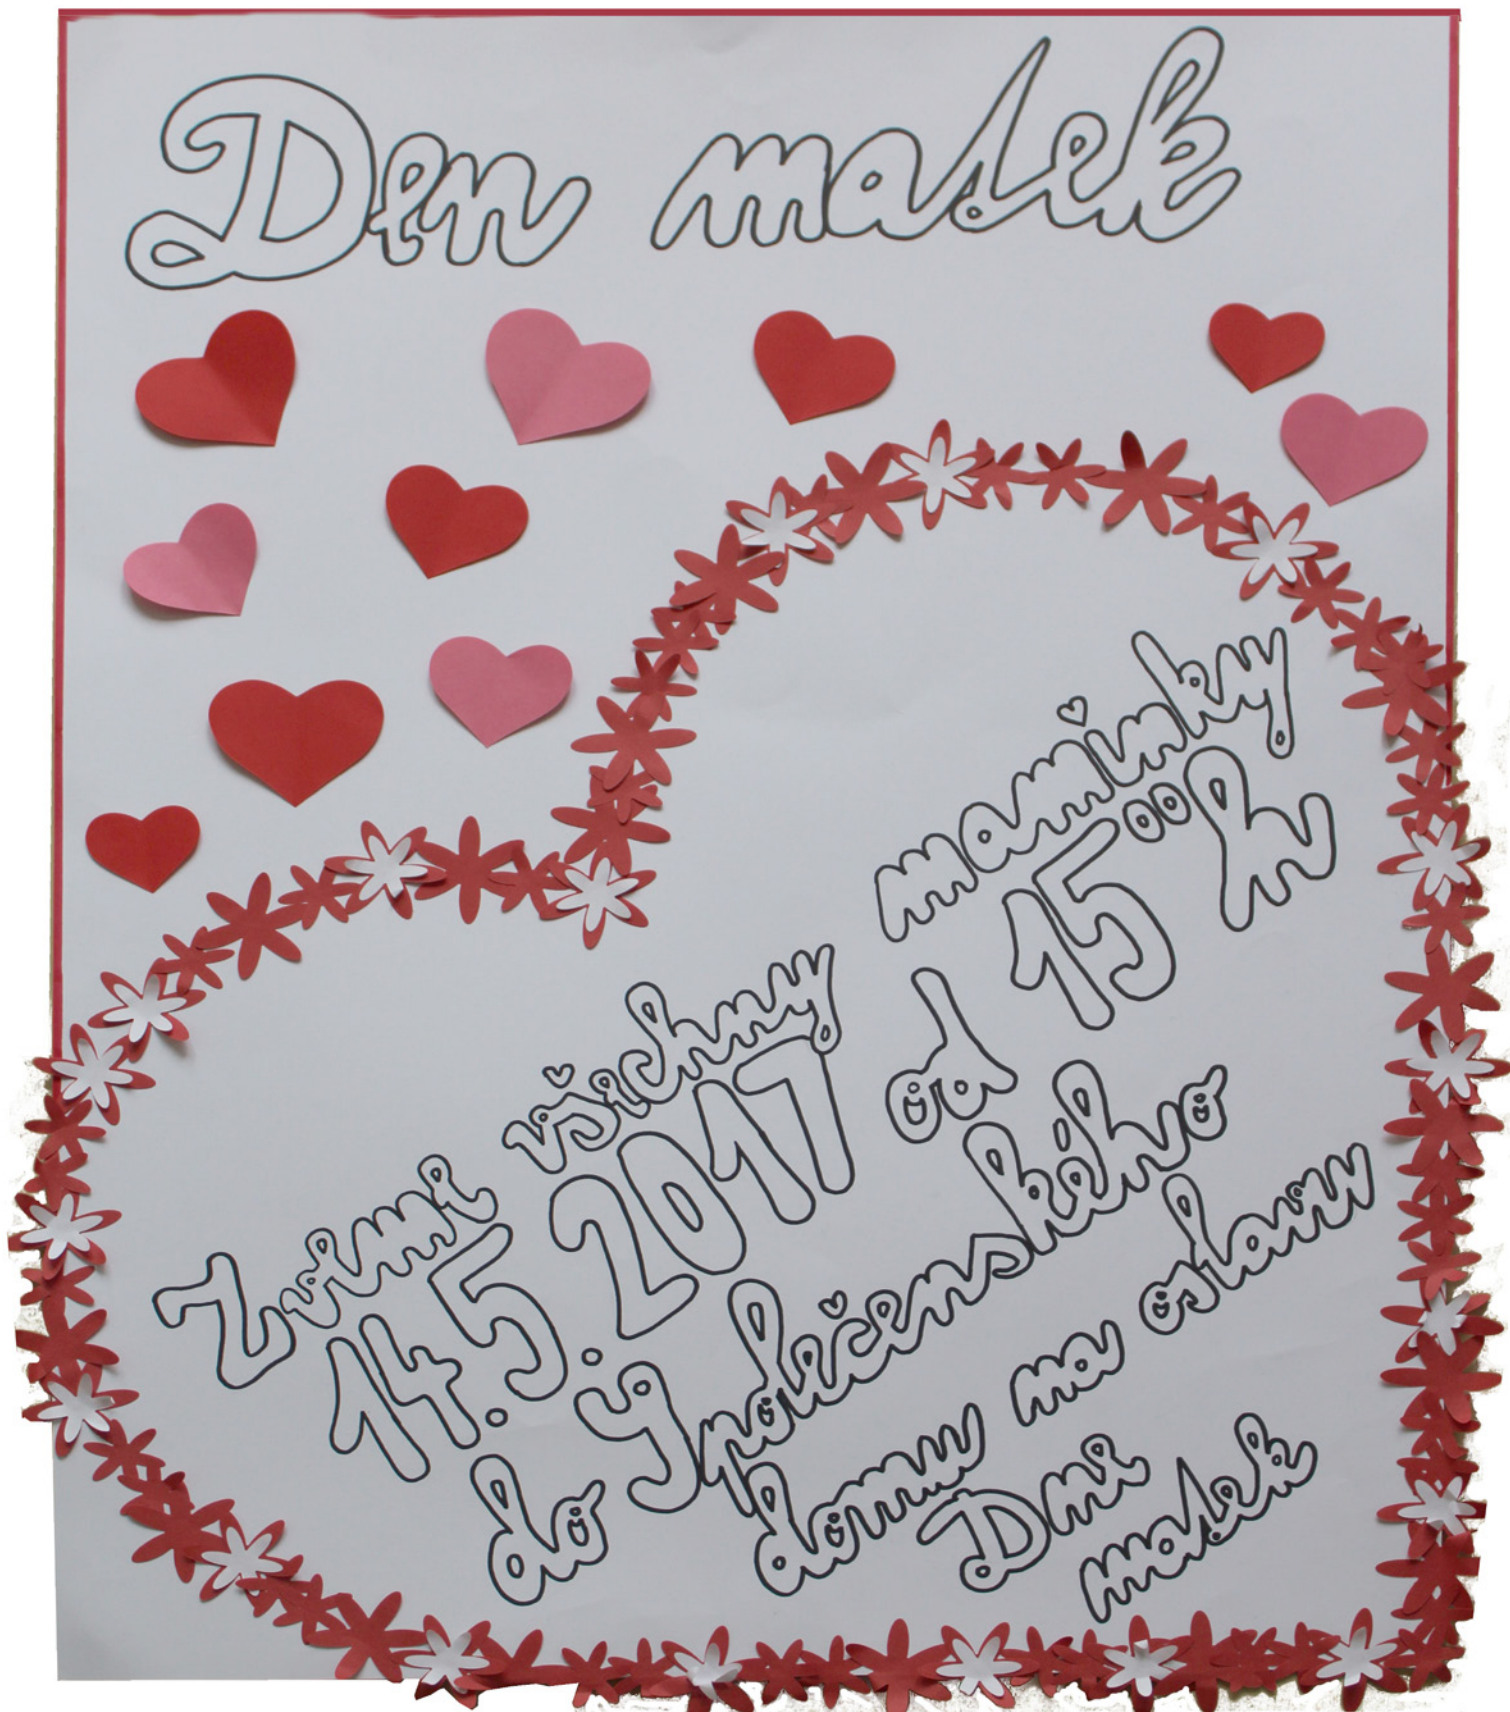 Den matek
Zveme všechny maminky
14.5.2017 od 15⁰⁰h
do Společenského
domu na oslavu
Dne
matek